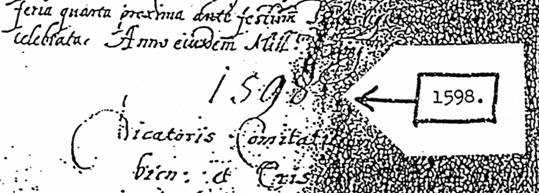 feria quarta proxima ante festum
celebratae Anno eiusdem Mill:
1598
1598.
Dicatoris Comitatus
bien: et Cris